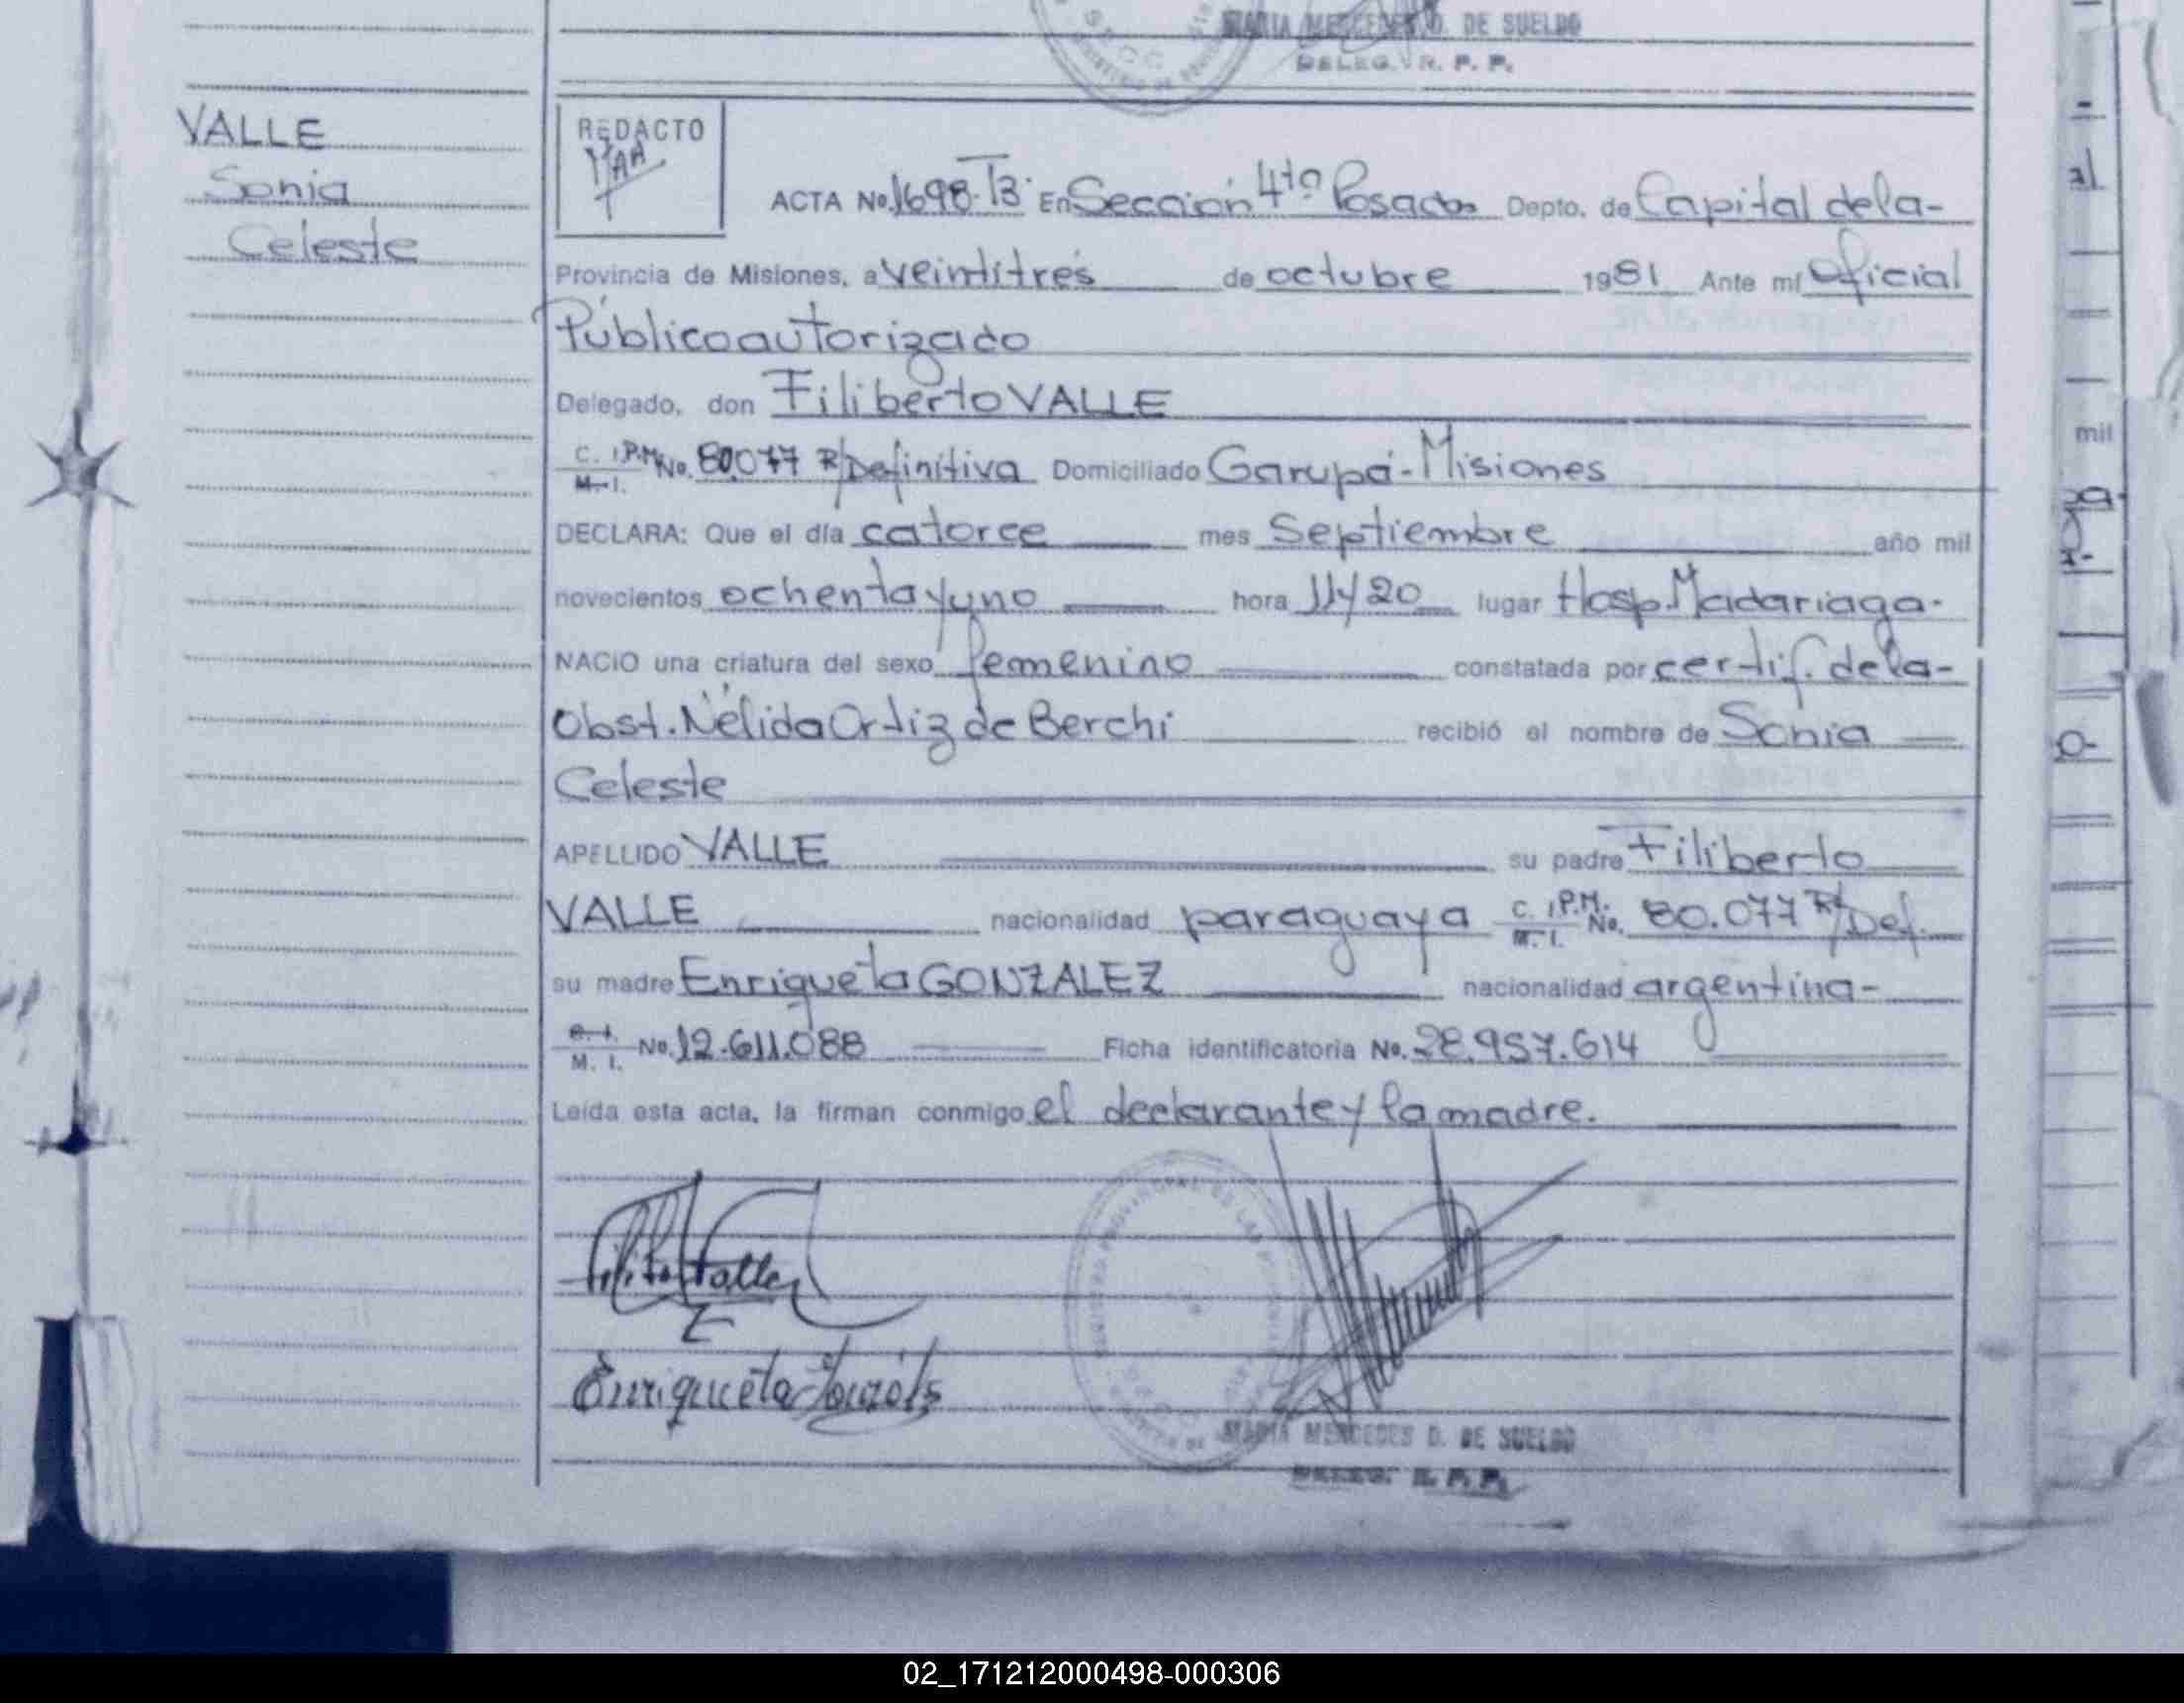 MARIA MERCEDES D. DE SUELDO
DELEG. R. P. P.
VALLE
Sonia
Celeste
REDACTO
ACTA No. 1698-T3 En Sección 4ta Posadas Depto. de Capital de la-
Provincia de Misiones, a veintitrés de octubre 1981 Ante mí Oficial
Público autorizado
Delegado, don Filiberto VALLE
C. I.P.M. M. I. No. 80.077 R/Definitiva Domiciliado Garupá-Misiones
DECLARA: Que el día catorce mes Septiembre año mil
novecientos ochenta y uno hora 11y20 lugar Hosp. Madariaga.
NACIO una criatura del sexo femenino constatada por certif. de la-
Obst. Nélida Ortiz de Berchi recibió el nombre de Sonia
Celeste
APELLIDO VALLE su padre Filiberto
VALLE nacionalidad paraguaya C. I.P.M. M. I. No. 80.077 R/Def.
su madre Enriqueta GONZALEZ nacionalidad argentina-
C. I. M. I. No. 12.611.088 Ficha identificatoria No. 28.957.614
Leída esta acta, la firman conmigo el declarante y la madre.
Enriqueta
MARIA MERCEDES D. DE SUELDO
DELEG. R. P. P.
mil
02_171212000498-000306